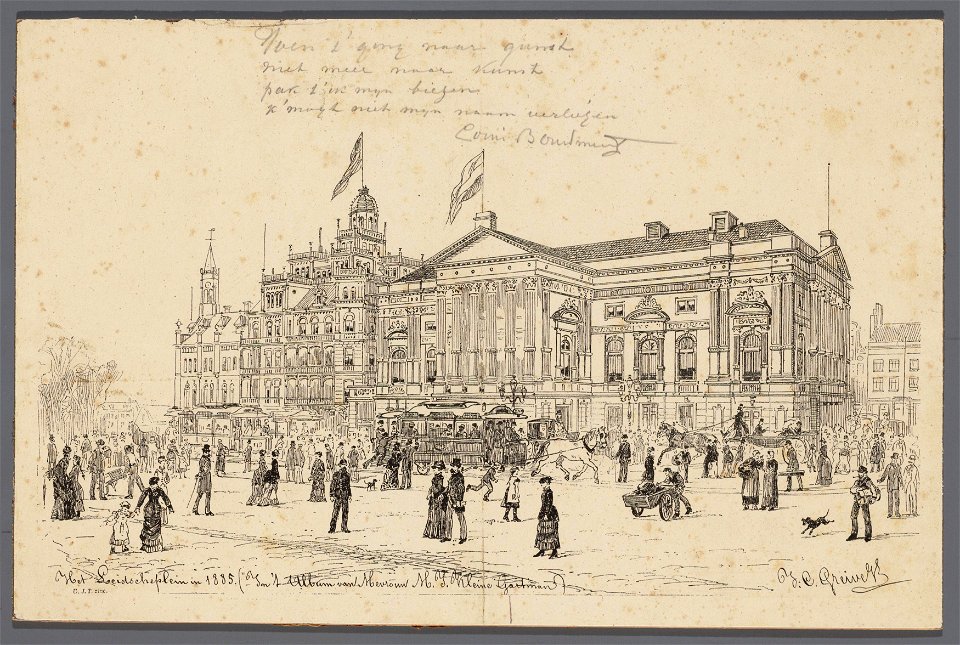 Toen 't ging naar gunst
niet meer naar kunst
pak t' ik mijn biezen
k' mogt niet mijn naam verliezen
Louis Boudmint
Het Leidscheplein in 1885. (In 't Album van Mevrouw M. J. Kleine Gartman)
J. C. Greive Jr